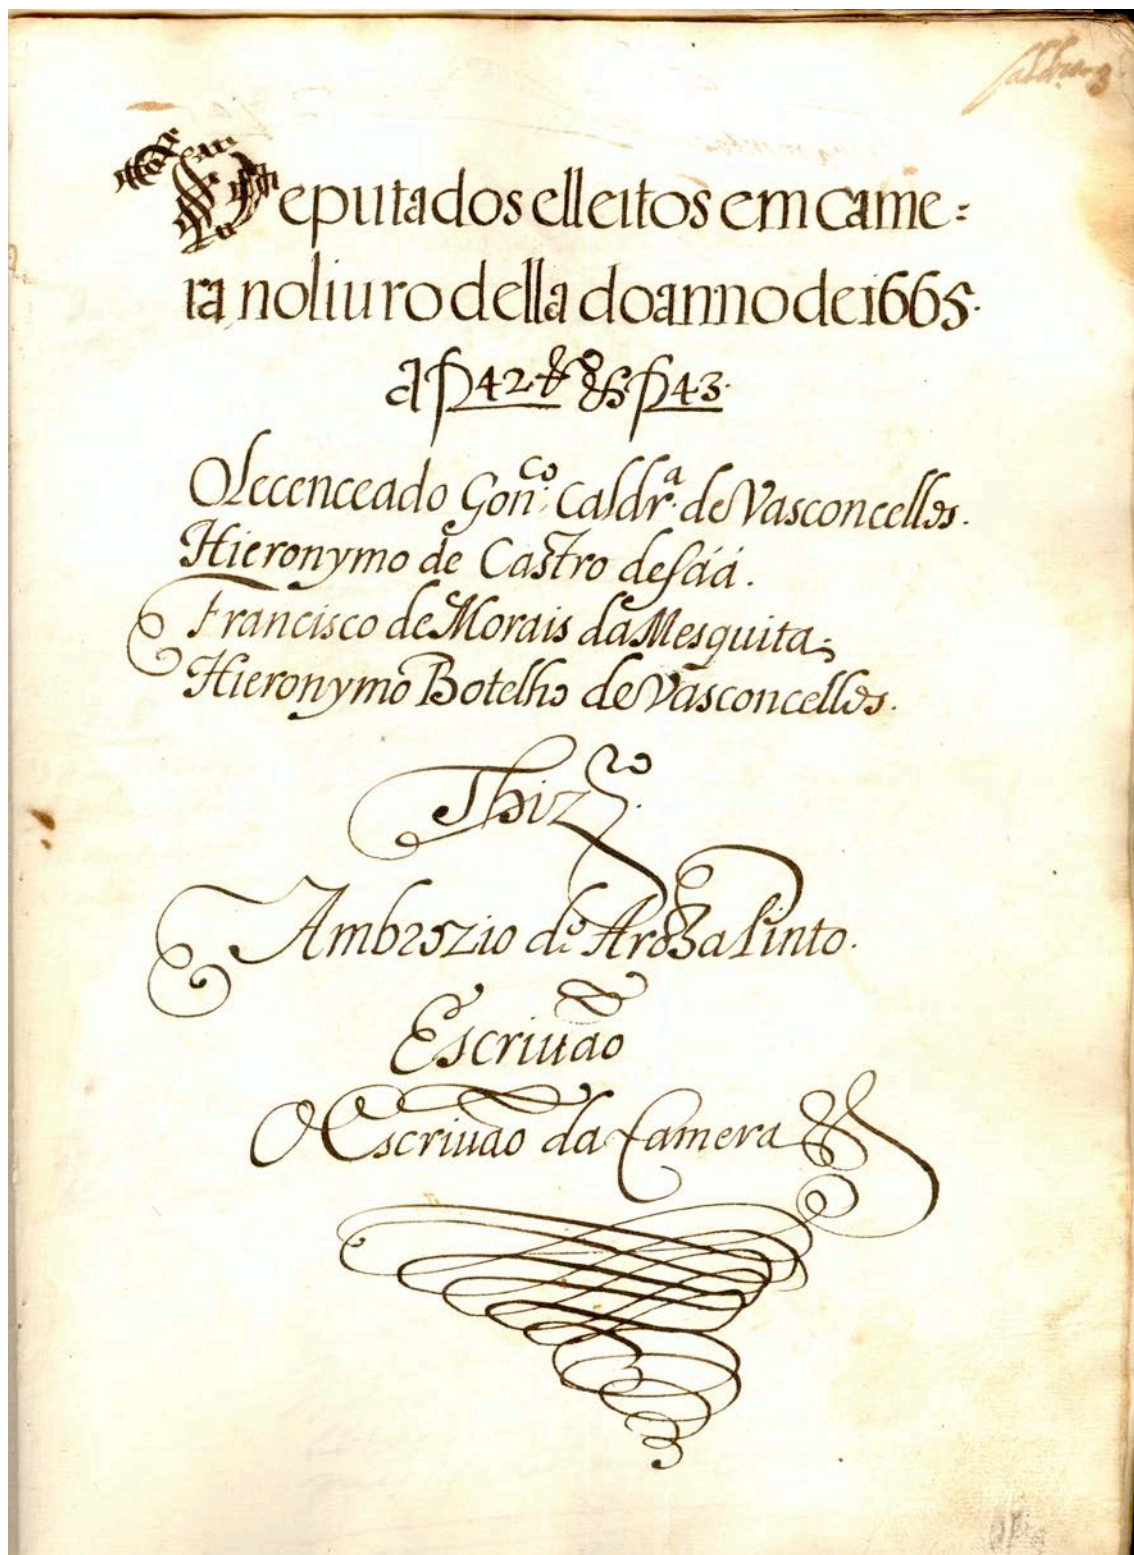 Deputados elleitos em came=
ra no liuro della do anno de 1665.
a fl 42. & fl 43.
O Lecenceado Gon.co Caldr.a de Vasconcellos.
Hieronymo de Castro de sáá.
Francisco de Morais da Mesquita;
Hieronymo Botelho de Vasconcellos.
Thiz.ro
Ambrozio d.o Aroza Pinto.
Escriuão
O Escriuão da Camera